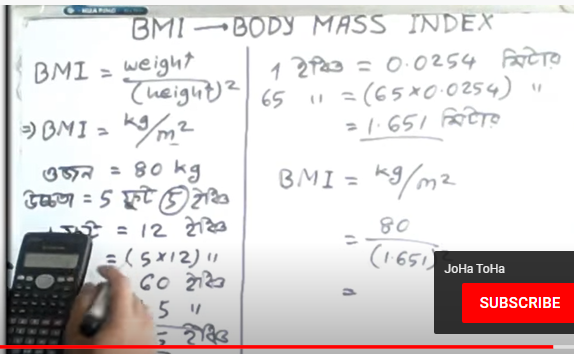 BMI → BODY MASS INDEX
BMI = weight/(height)²
⇒ BMI = kg/m²
ওজন = 80 kg
উচ্চতা = 5 ফুট 5 ইঞ্চি
= 12 ইঞ্চি
= (5×12) "
60 ইঞ্চি
5 "
ইঞ্চি
1 ইঞ্চি = 0.0254 মিটার
65 " = (65×0.0254) "
= 1.651 মিটার
BMI = kg/m²
= 80/(1.651)
=
JoHa ToHa
SUBSCRIBE